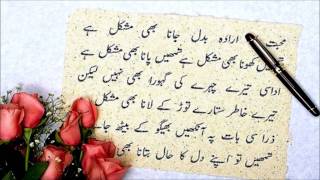 محبت ارادہ بدل جانا بھی مشکل ہے
تمھیں کھونا بھی مشکل ہے تمھیں پانا بھی مشکل ہے
اداسی تیرے چہرے کی گہوارا بھی نہیں لیکن
تیرے خاطر ستارے توڑ کے لانا بھی مشکل ہے
ذرا سی بات پہ آنکھیں بھیگو کے بیٹھ جاے
تمھیں تو اپنے دل کا حال بتانا بھی